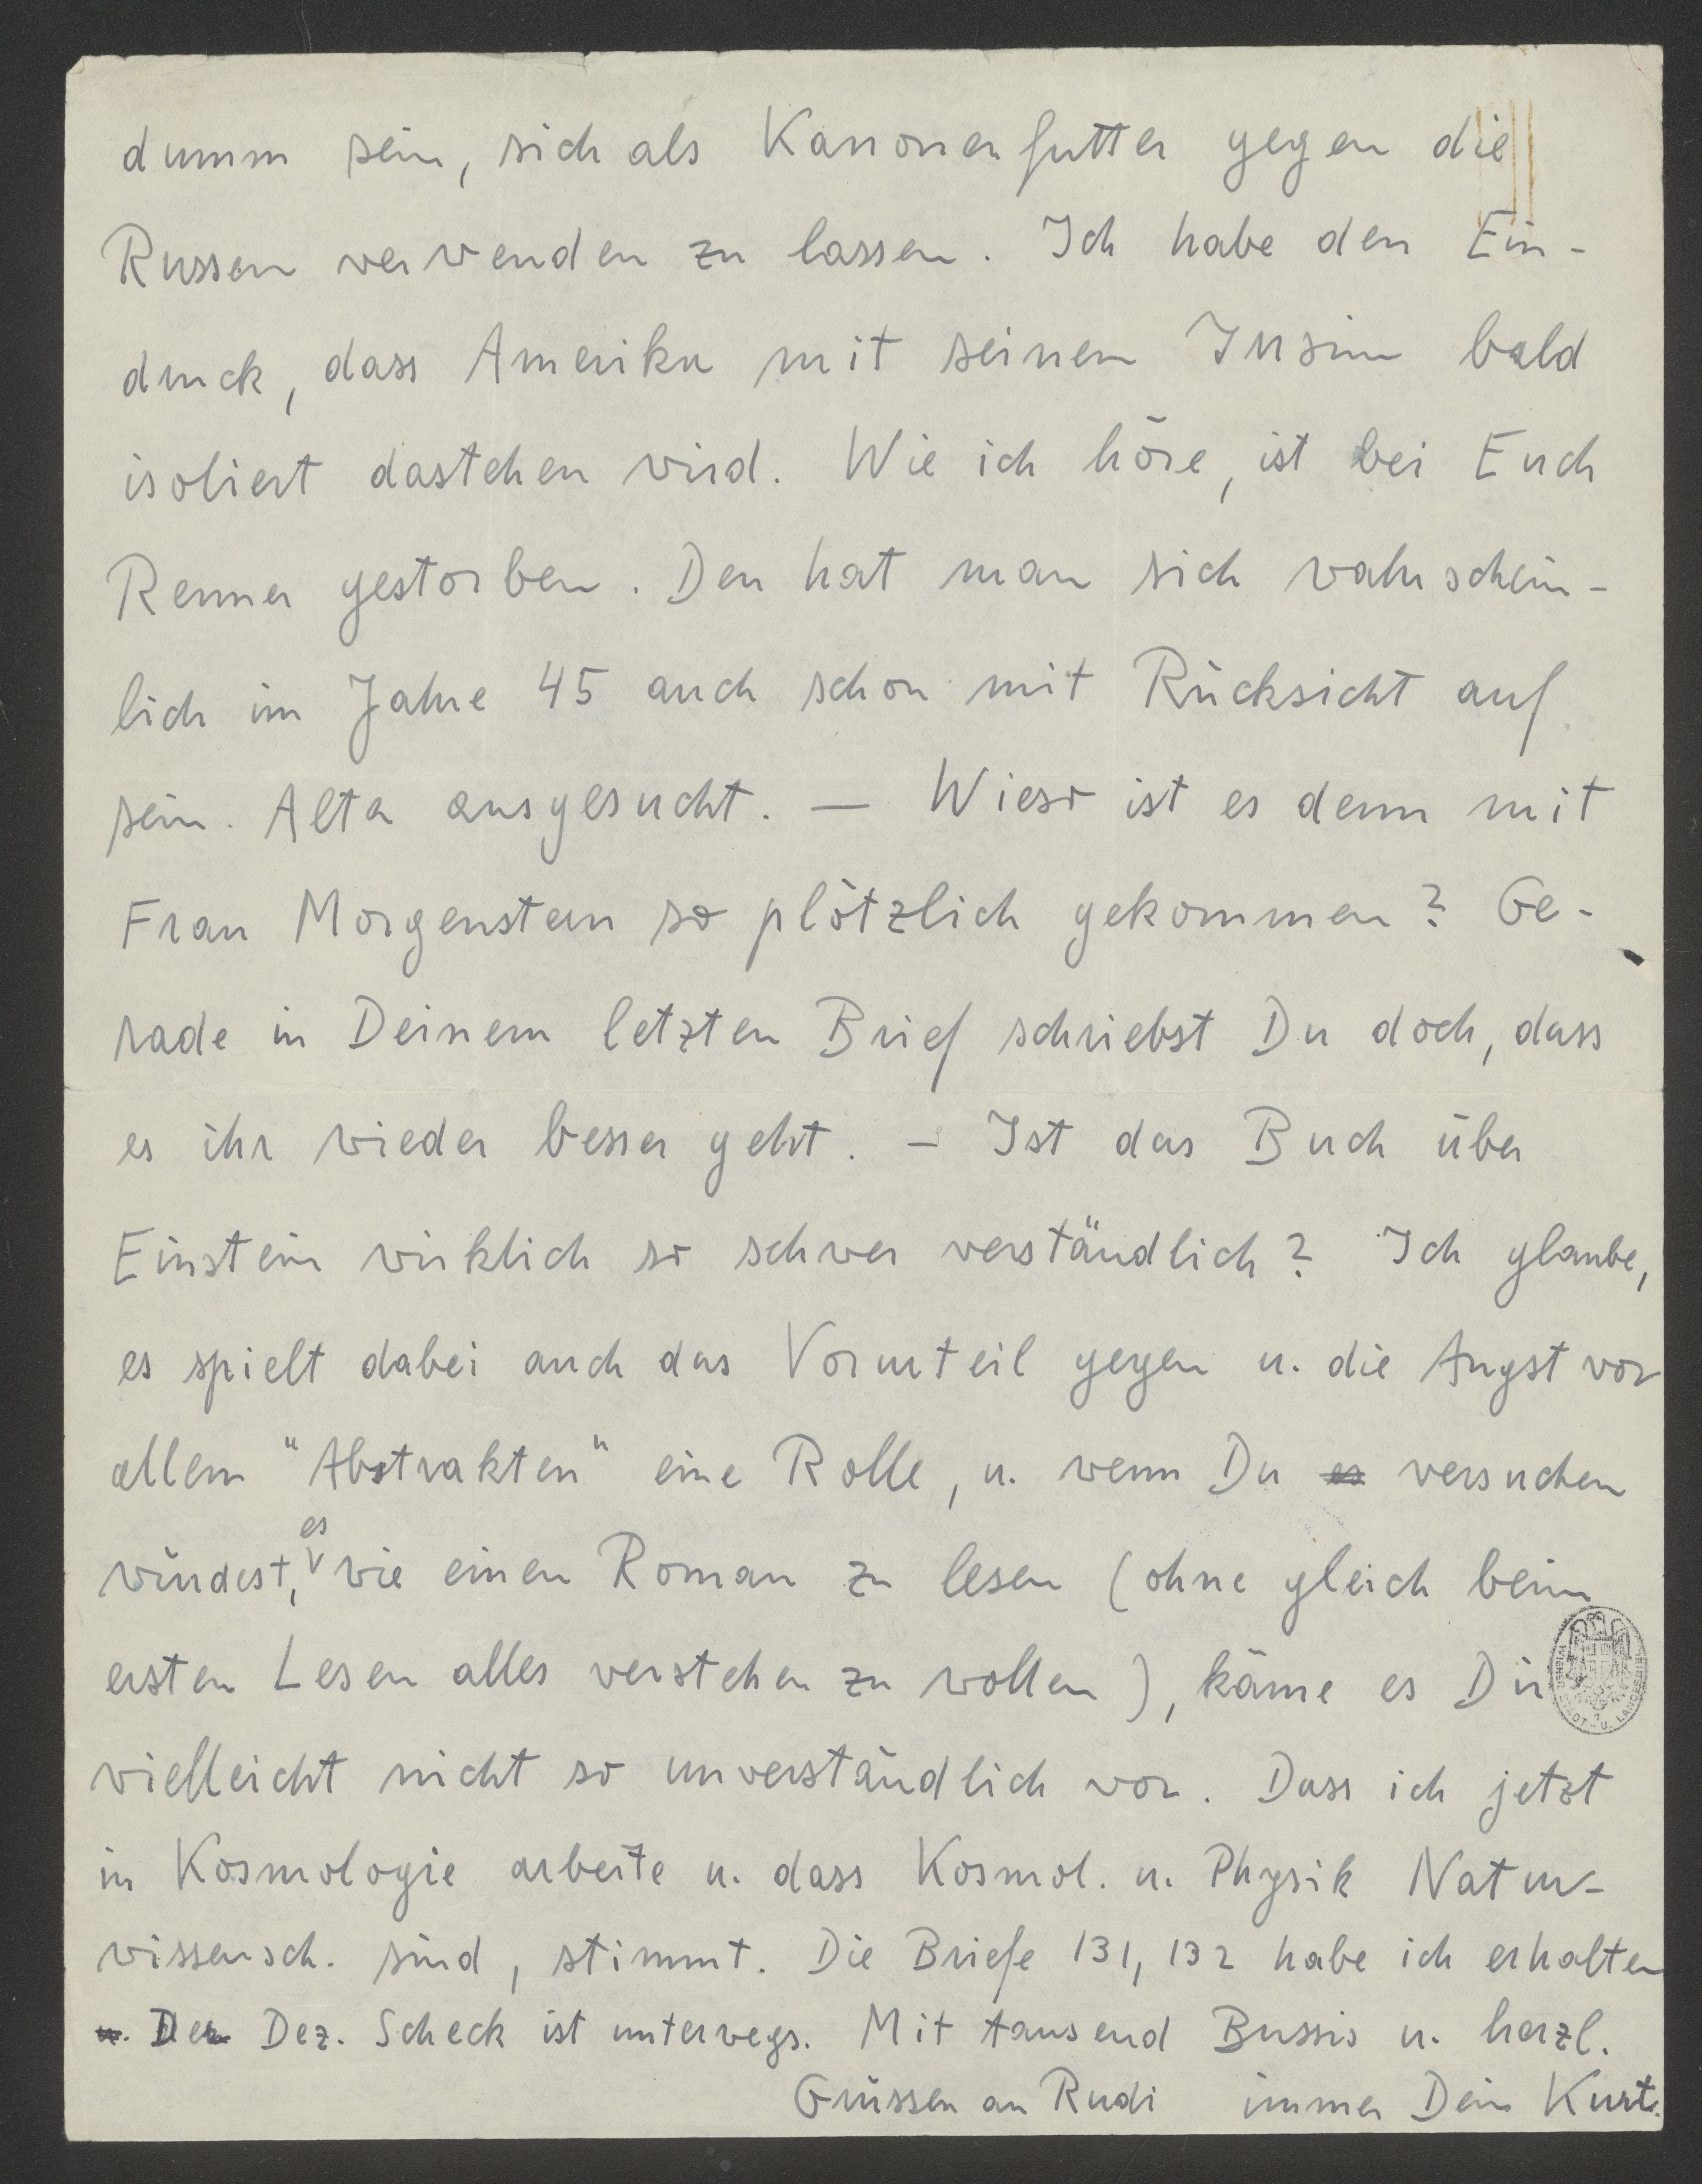 dumm sein, sich als Kanonenfutter gegen die
Russen verwenden zu lassen. Ich habe den Ein-
druck, dass Amerika mit seinem Irrsinn bald
isoliert dastehen wird. Wie ich höre, ist bei Euch
Renner gestorben. Den hat man sich wahrschein-
lich im Jahre 45 auch schon mit Rücksicht auf
sein. Alter ausgesucht. — Wieso ist es denn mit
Frau Morgenstern so plötzlich gekommen? Ge-
rade in Deinem letzten Brief schriebst Du doch, dass
es ihr wieder besser geht. – Ist das Buch über
Einstein wirklich so schwer verständlich? Ich glaube,
es spielt dabei auch das Vorurteil gegen u. die Angst vor
allem "Abstrakten" eine Rolle, u. wenn Du es versuchen
würdest, es wie einen Roman zu lesen (ohne gleich beim
ersten Lesen alles verstehen zu wollen), käme es Dir
vielleicht nicht so unverständlich vor. Dass ich jetzt
in Kosmologie arbeite u. dass Kosmol. u. Physik Natur-
wissensch. sind, stimmt. Die Briefe 131, 132 habe ich erhalten
u. Der Dez. Scheck ist unterwegs. Mit tausend Bussis u. herzl.
Grüssen an Rudi immer Dein Kurt.